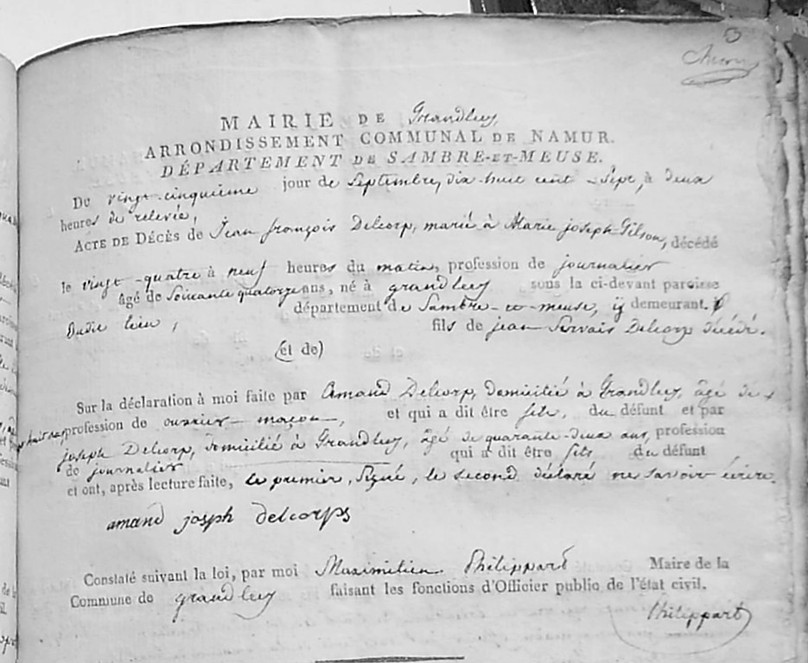 3
MAIRIE DE Grandleez
ARRONDISSEMENT COMMUNAL DE NAMUR.
DÉPARTEMENT DE SAMBRE-ET-MEUSE.
Du vingt-cinquième jour de Septembre, dix huit cent-Sept, à deux
heures de relevée,
ACTE DE DÉCÈS de Jean françois Delcorp, marié à Marie joseph Gilson, décédé
le vingt-quatre à neuf heures du matin, profession de journalier
âgé de Soixante quatorze ans, né à grandleez sous la ci-devant paroisse
département de Sambre-et-meuse, y demeurant.
Dudit lieu, fils de jean Servais Delcorp décédé.
(et de)
Sur la déclaration à moi faite par Amand Delcorp, domicilié à Grandleez, âgé de
profession de ouvrier-maçon, et qui a dit être fils, du défunt et par
joseph Delcorp, domicilié à Grandleez, âgé de quarante-deux ans, profession
de journalier qui a dit être fils du défunt
et ont, après lecture faite, le premier, Signé, le second déclaré ne savoir écrire.
amand joseph delcorps
Constaté suivant la loi, par moi Maximilien Philippart Maire de la
Commune de grandleez faisant les fonctions d'Officier public de l'état civil.
Philippart